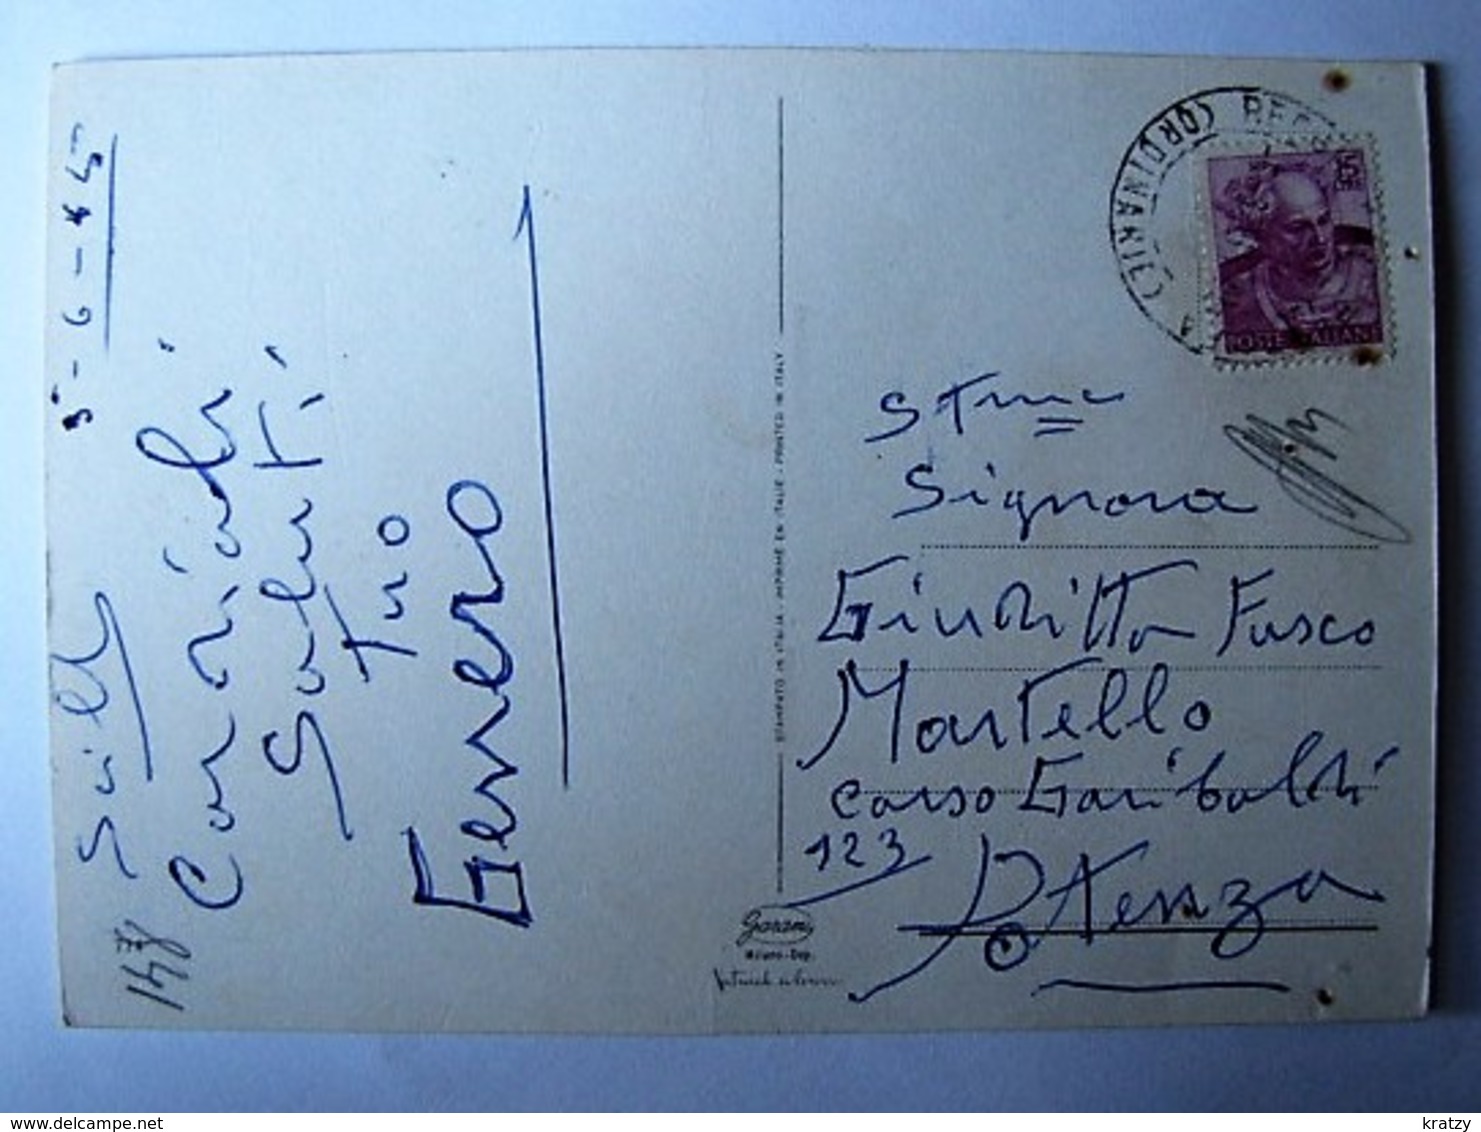 5-6-45
Cordiali
Saluti
tuo
Genero
STAMPATO IN ITALIA - IMPRIMÉ EN ITALIE - PRINTED IN ITALY
Garami
Milano - Dep.
(ORDINARIE)
15
LIRE
POSTE ITALIANE
Signora
Giuditta Fusco
Martello
corso Garibaldi
123
Potenza
kratzy